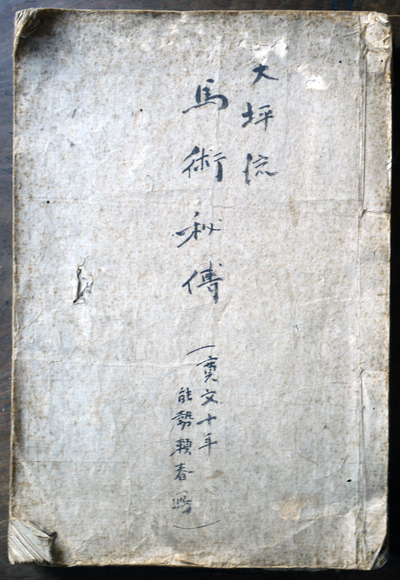 大坪流
馬術秘傳
(寛文十年
能勢頼春写)